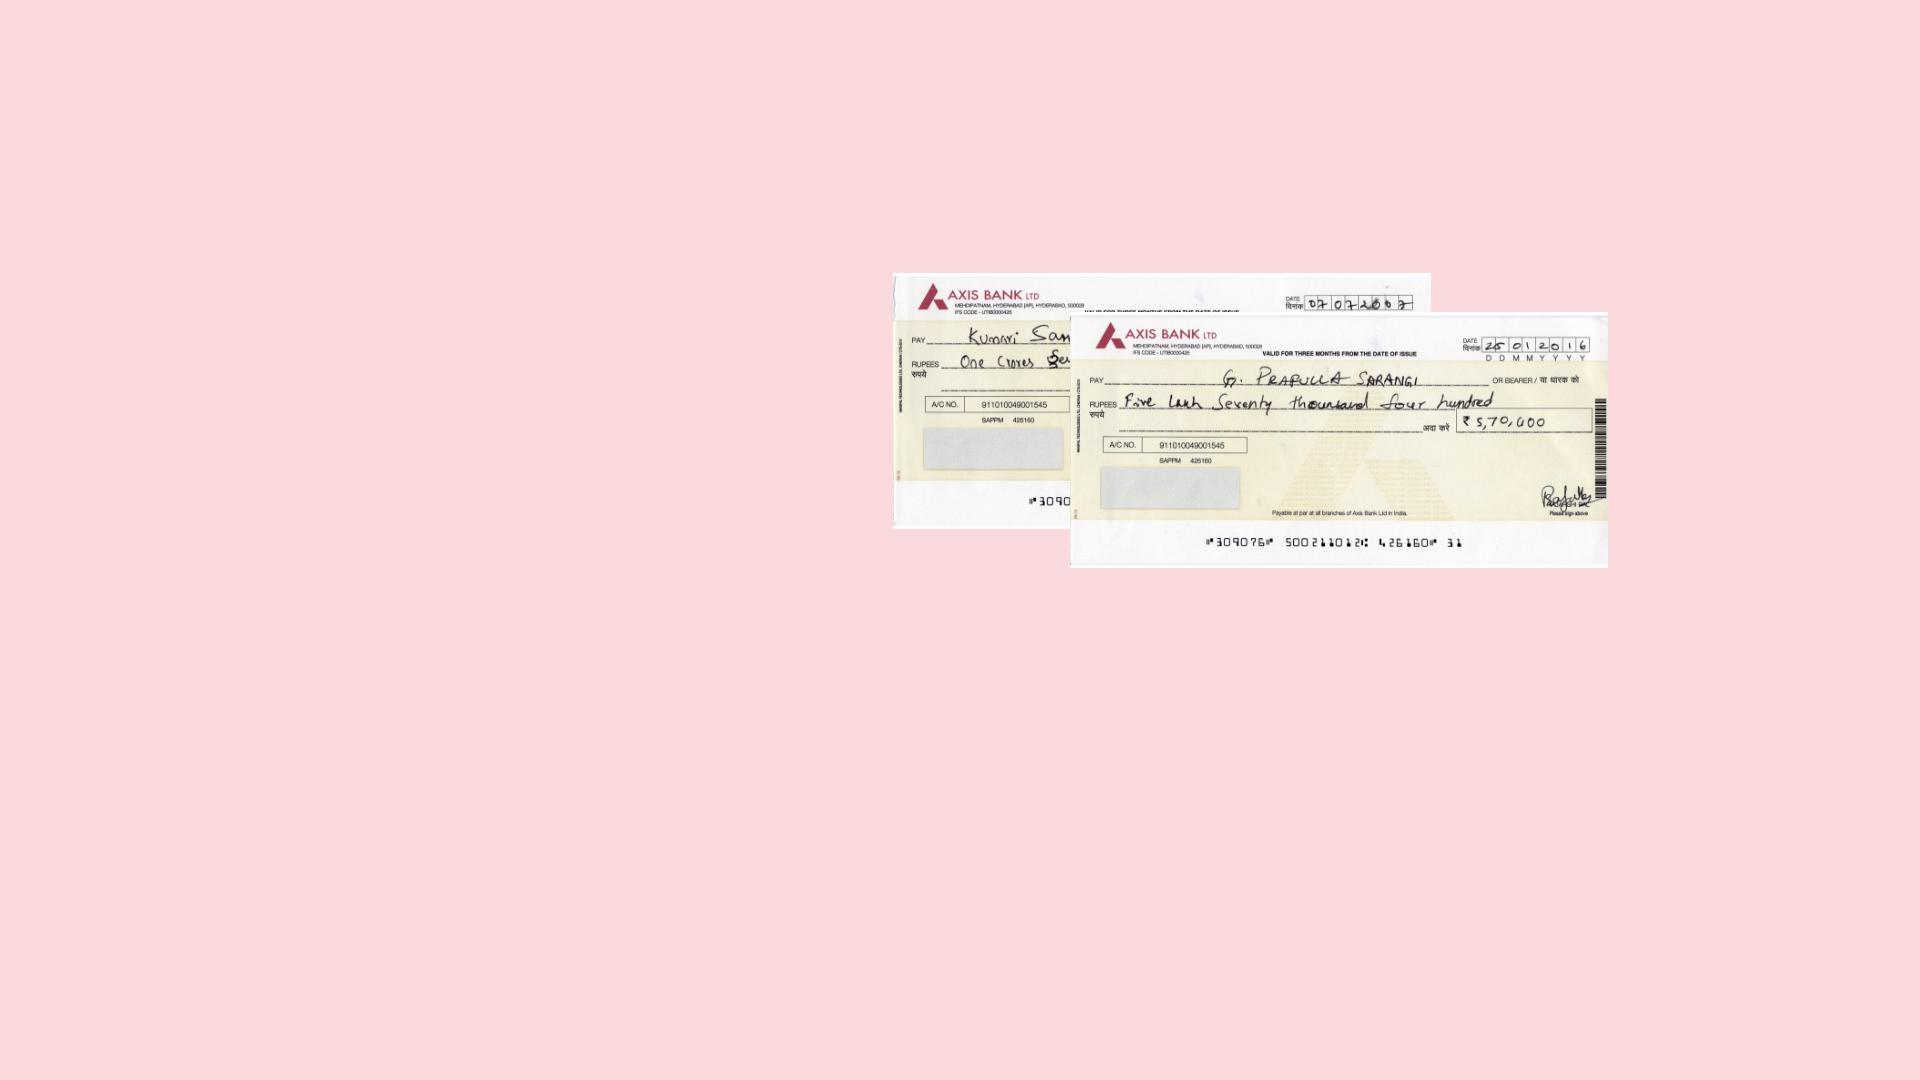 AXIS BANK LTD
MEHDIPATNAM, HYDERABAD [AP], HYDERABAD, 500028
IFS CODE - UTIB0000426
DATE
दिनांक 07072007
VALID FOR THREE MONTHS FROM THE DATE OF ISSUE
PAY Kumari
RUPEES One Crores
रुपये
A/C NO. 911010049001545
SAPPM 426160
AXIS BANK LTD
MEHDIPATNAM, HYDERABAD [AP], HYDERABAD, 500028
IFS CODE - UTIB0000426
VALID FOR THREE MONTHS FROM THE DATE OF ISSUE
DATE
दिनांक 25012016
D D M M Y Y Y Y
PAY G. PRAFULLA SARANGI OR BEARER / या धारक को
RUPEES Five Lakh Seventy thounsand four hundred
रुपये
अदा करें ₹ 5,70,400
A/C NO. 911010049001545
SAPPM 426160
Please sign above
Payable at par at all branches of Axis Bank Ltd in India.
"309076" 500211012: 426160" 31